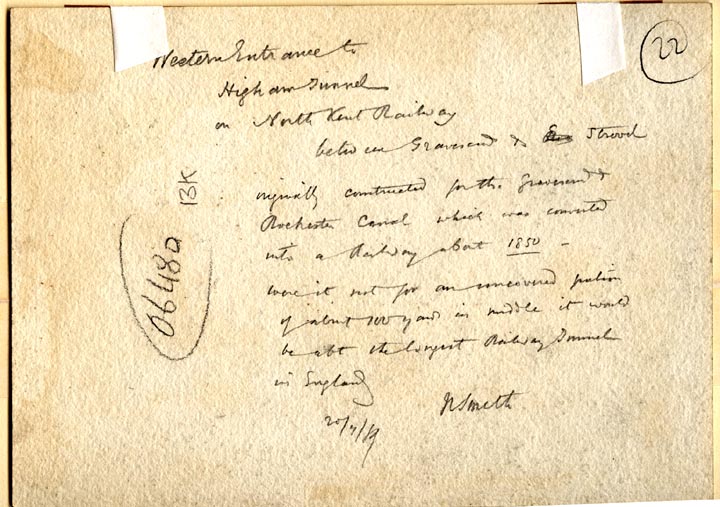 22
Western Entrance to
Higham Tunnel
on North Kent Railway
between Gravesend & Strood
originally constructed for the Gravesend &
Rochester Canal which was converted
into a Railway about 1850 -
were it not for an uncovered portion
of about 100 yards in middle it would
be abt the longest Railway Tunnel
in England
Smith
20/7/
0648a 13K